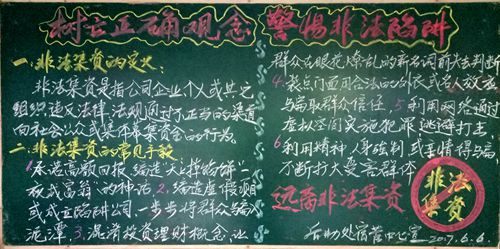 树立正确观念 警惕非法陷阱
一.非法集资的定义
非法集资是指公司企业、个人或其它
组织违反法律、法规通过不正当的渠道
向社会公众或集体募集资金的行为。
二.非法集资的常见手段
1.承诺高额回报编造“天上掉馅饼”“一
夜成富翁”的神话 2.编造虚假项目
或成立陷阱公司一步步将群众骗入
泥潭 3.混淆投资理财概念让
群众在眼花缭乱的新名词前失去判断
4.装点门面用合法的外衣或名人效应
骗取群众信任 5.利用网络通过
虚拟空间实施犯罪逃避打击
6.利用精神、人身强制或亲情诱骗
不断扩大受害群体
远离非法集资
非法
集资
后勤处宿管中心宣
2017.6.6